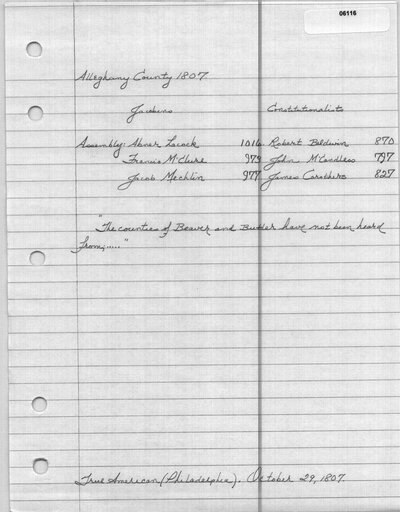 06116
Alleghany County 1807
Jacobins Constitutionalists
Assembly: Abner Lacock 1016 Robert Baldwin 870
Francis McClure 979 John McCandless 797
Jacob Mechlin 977 James Carothers 827
"The counties of Beaver and Butler have not been heard
from,....."
True American (Philadelphia). October 29, 1807.